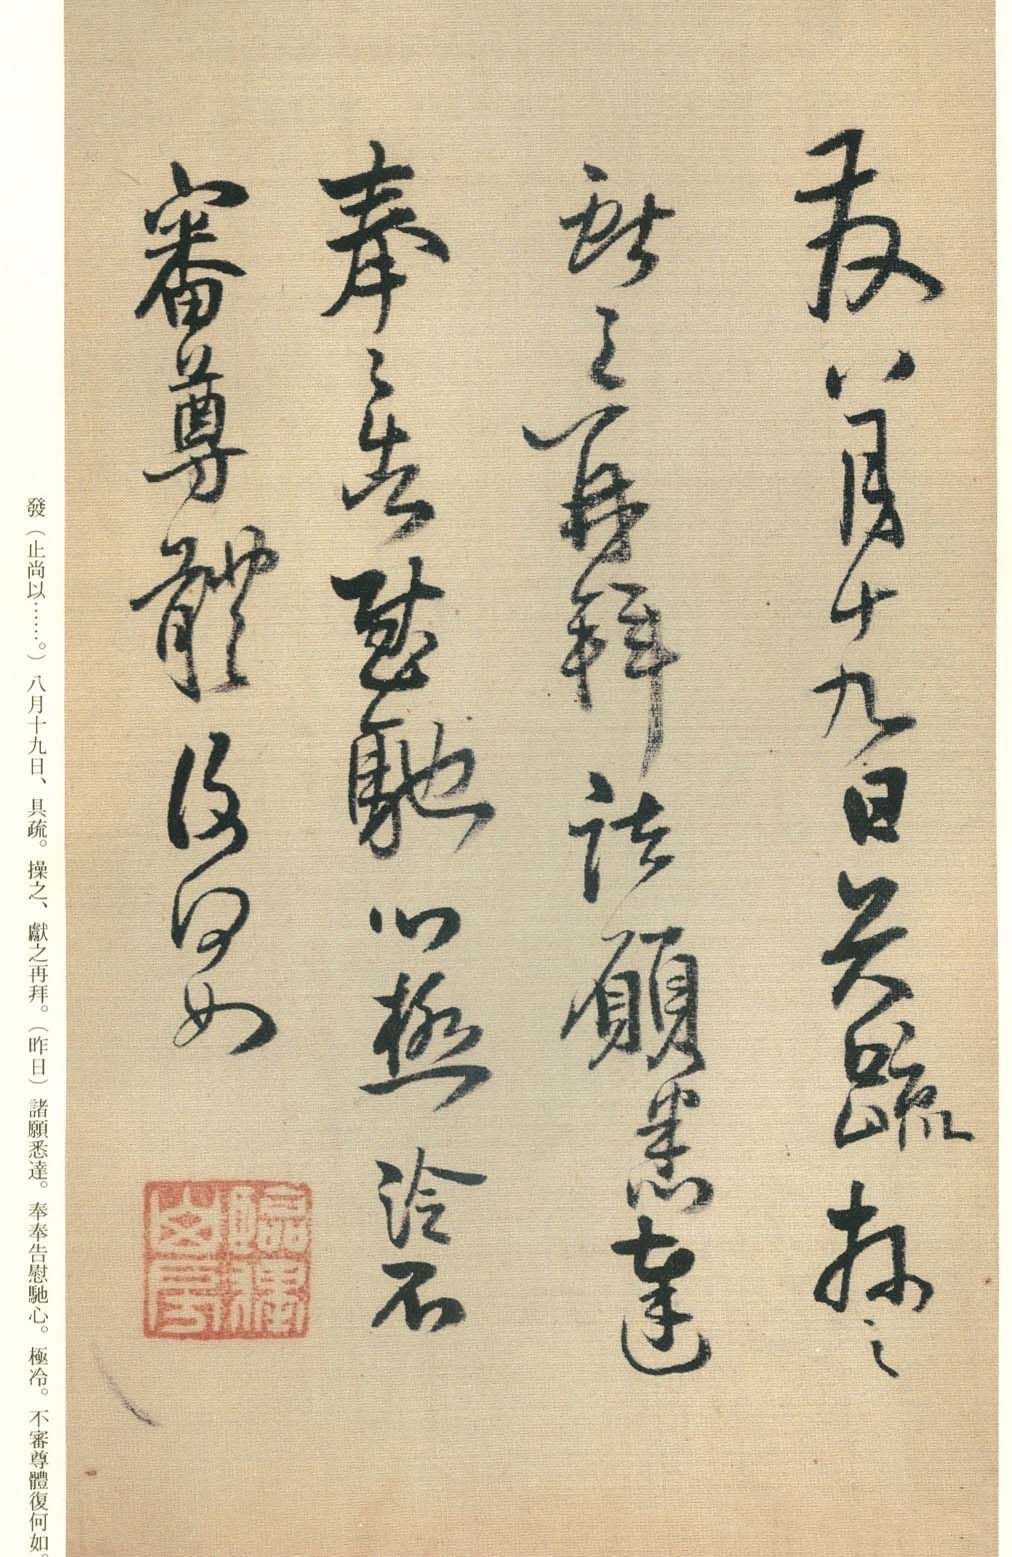 發八月十九日具疏操之
獻之再拜諸願悉達
奉〻告慰馳心極冷不
審尊體復何如
山房
發（止尚以……。）八月十九日、具疏。操之、獻之再拜。（昨日）諸願悉達。奉奉告慰馳心。極冷。不審尊體復何如。